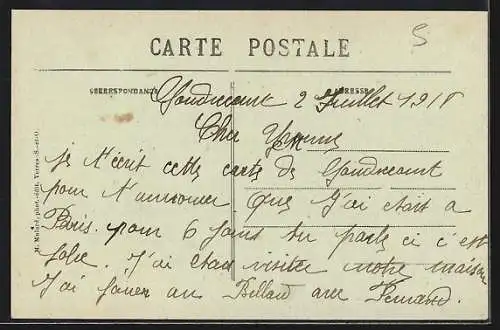 CARTE POSTALE
5
CORRESPONDANCE
ADRESSE
Gondrecourt 2 Juillet 1918
Cher Yvonne
Je t'écrit cette carte de Gondrecourt
pour t'annoncer que J'ai était a
Paris. pour 6 jours tu parle ci c'est
folie. J'ai était visiter notre maison
J'ai jouer au Billard avec Fernand.